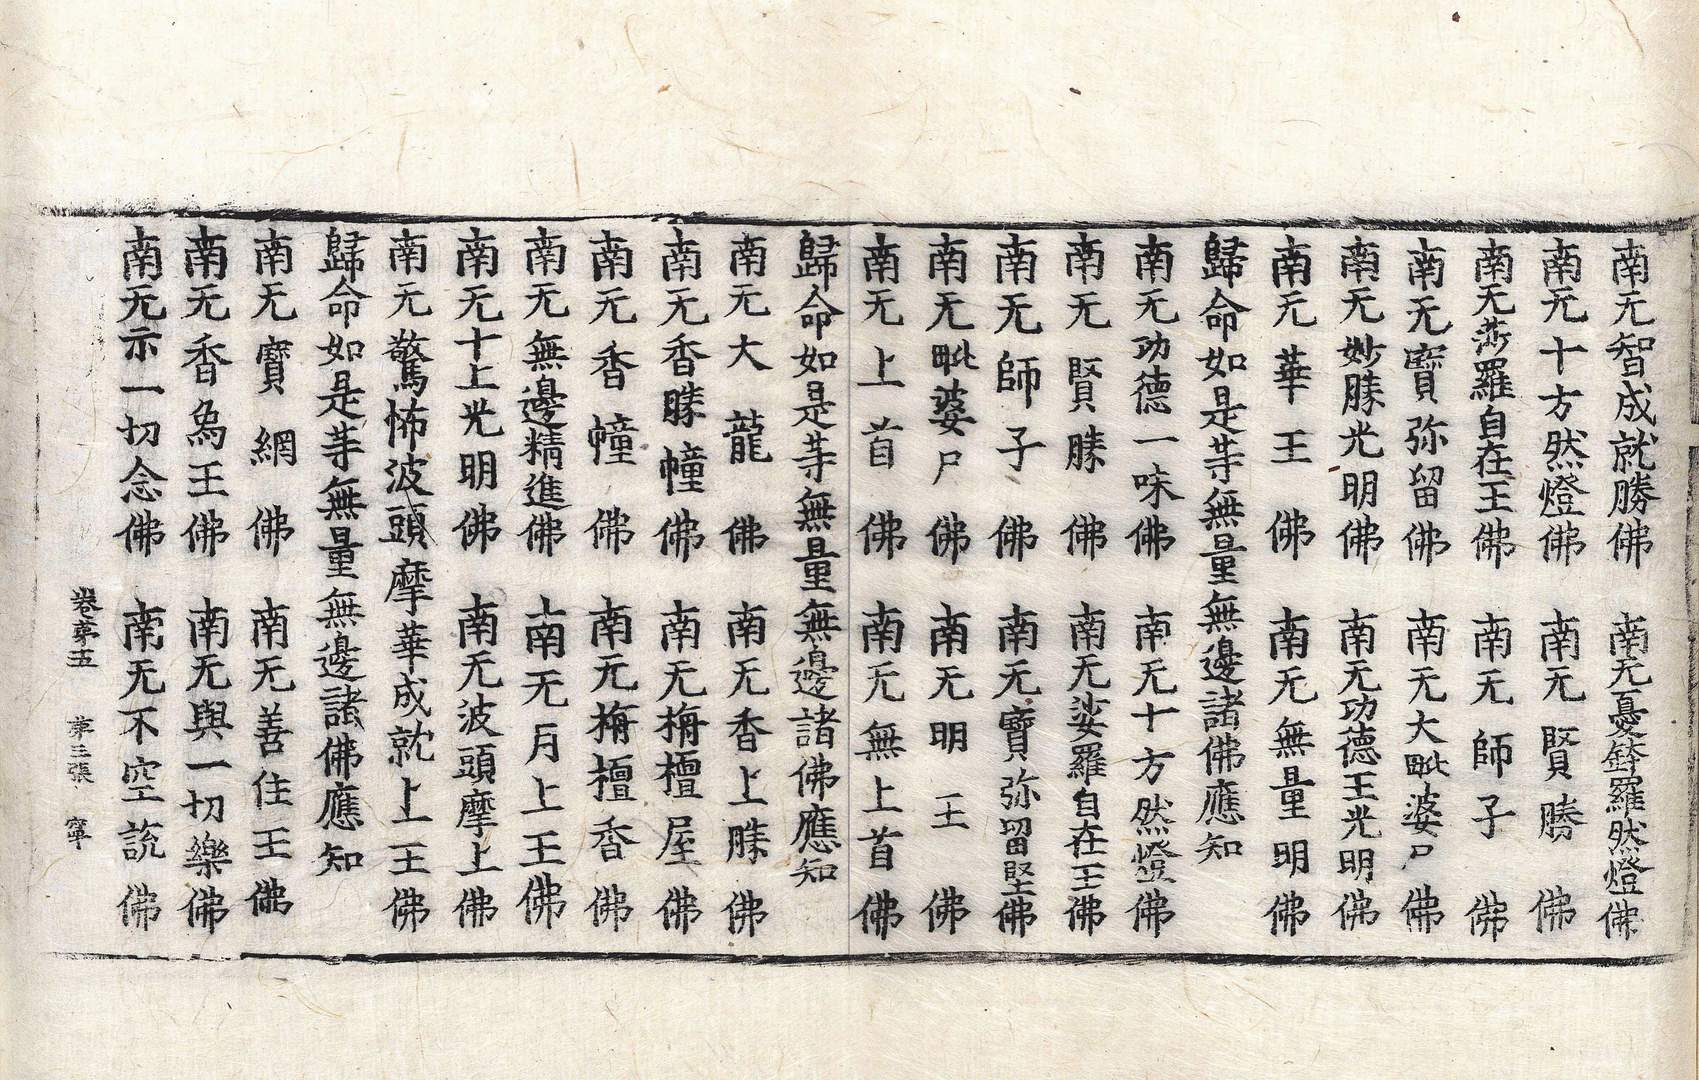 南无智成就勝佛　南无憂鉢羅然燈佛
南无十方然燈佛　南无賢勝佛
南无莎羅自在王佛　南无師子佛
南无寶弥留佛　南无大毗婆尸佛
南无妙勝光明佛　南无功德王光明佛
南无華王佛　南无無量明佛
歸命如是䓁無量無邊諸佛應知
南无功德一味佛　南无十方然燈佛
南无賢勝佛　南无娑羅自在王佛
南无師子佛　南无寶弥留堅佛
南无毗婆尸佛　南无明王佛
南无上首佛　南无無上首佛
歸命如是䓁無量無邊諸佛應知
南无大龍佛　南无香上勝佛
南无香勝幢佛　南无栴檀屋佛
南无香幢佛　南无栴檀香佛
南无無邊精進佛　南无月上王佛
南无十上光明佛　南无波頭摩上佛
南无驚怖波頭摩華成就上王佛
歸命如是䓁無量無邊諸佛應知
南无寶網佛　南无善住王佛
南无香為王佛　南无與一切樂佛
南无示一切念佛　南无不空說佛
卷第五　第三張　寧